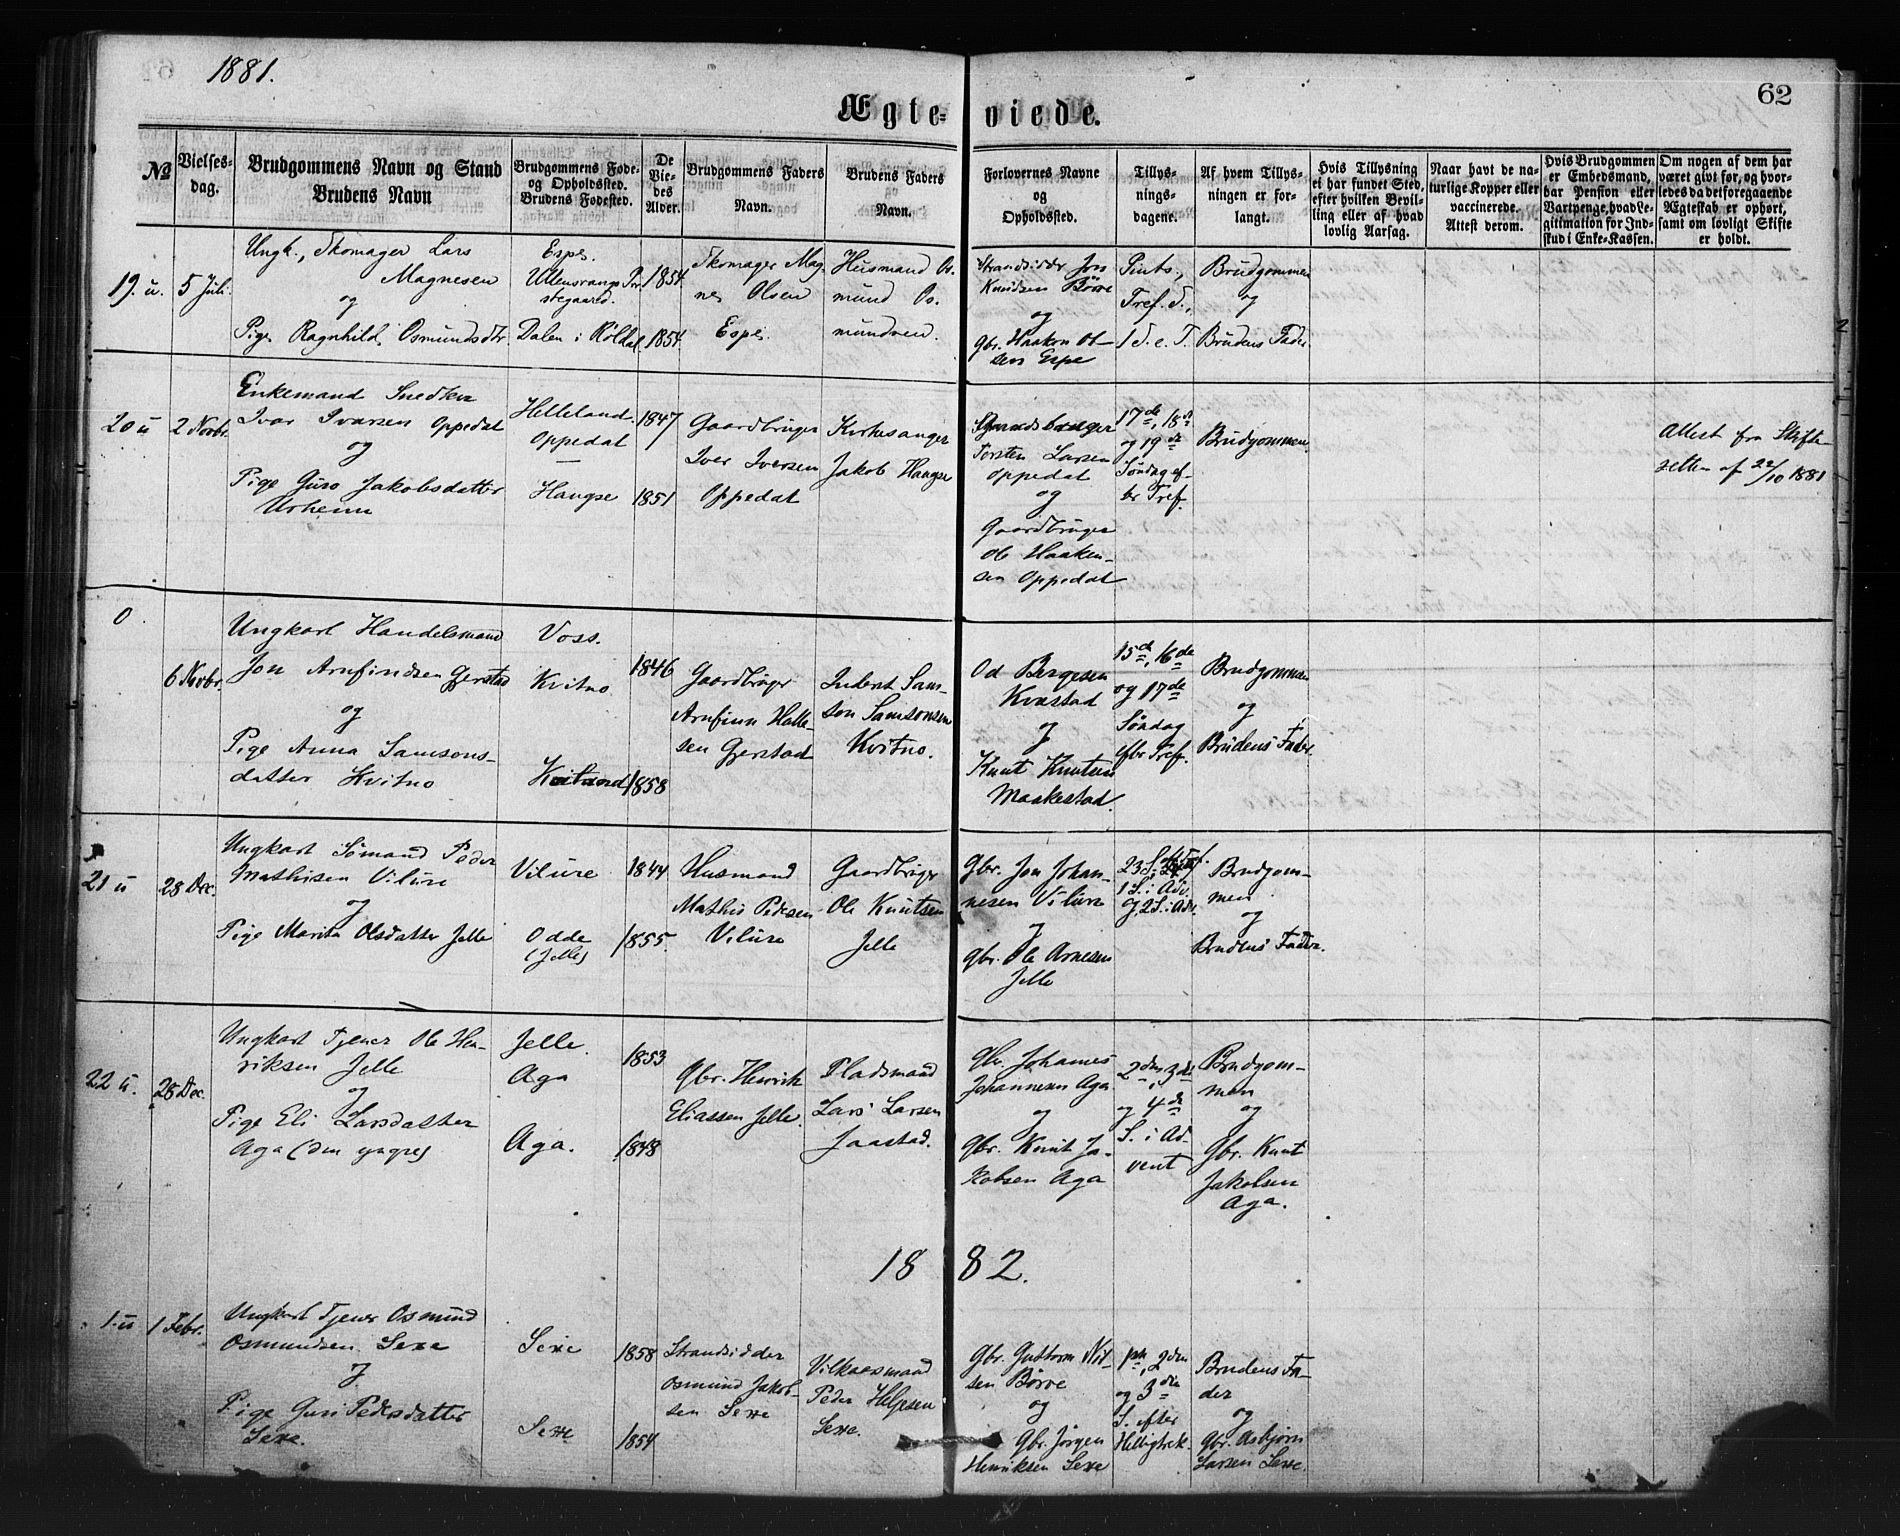 1881.
62
Ægteviede.
No
Vielses-
dag.
Brudgommens Navn og Stand
Brudens Navn
Brudgommens Føde-
og Opholdssted.
Brudens Fødested.
De
Vie-
des
Alder.
Brudgommens Faders
Navn.
Brudens Faders
Navn.
Forlovernes Navne
og
Opholdssted.
Tillys-
nings-
dagene.
Af hvem Tillys-
ningen er for-
langt.
Hvis Tillysning
ei har fundet Sted,
efter hvilken Bevil-
ling eller af hvad
lovlig Aarsag.
Naar havt de na-
turlige Kopper eller
vaccinerede.
Attest derom.
Hvis Brudgommen
er Embedsmand,
har Pension eller
Vartpenge, hvad Le-
gitimation for Ind-
skud i Enke-Kassen.
Om nogen af dem har
været givt før, og hvor-
ledes da det foregaaende
Ægteskab er ophørt,
samt om lovligt Skifte
er holdt.
19. u.
5 Juli.
Ungk., Skomager Lars
Magnesen
og
Pige Ragnhild Osmundsdtr
Espe.
Ullensvangs Præ-
stegaard.
Dalen i Röldal
1854
1854
Skomager Mag-
nes Olsen
Espe.
Husmand Os-
mund Os-
mundsen.
Strandsidder Jon
Knudsen Börve
og
Gbr. Haakon Ol-
sen Espe
Pints.,
Tref. S.,
1 S. e. T.
Brudgommen
og
Brudens Fader
20 u
2 Novbr.
Enkemand Snedker
Ivar Ivarsen Oppedal
og
Pige Guro Jakobsdatter
Urheim
Helleland.
Oppedal
—
Hangse
1847
1851
Gaardbruger
Iver Iversen
Oppedal
Kirkesanger
Jakob Hangse
Torsten Larsen
Oppedal
og
Gaardbruger
Ole Haaken-
sen Oppedal
17de, 18de
og 19de
Søndag ef-
ter Tref.
Brudgommen
Attest fra Skifte-
retten af 22/10 1881
0.
6 Novbr.
Ungkarl Handelsmand
Jon Arnfindsen Gjerstad
og
Pige Anna Samsons-
datter Kvitno
Voss.
Kvitno
1846
1858
Gaardbruger
Arnfinn Halle-
sen Gjerstad
Inderst Sam-
son Samsonsen
Kvitno.
Od Bergesen
Kvestad
og
Knut Knutsen
Maakestad.
15de, 16de
og 17de
Søndag
efter Tref.
Brudgommen
og
Brudens Fader.
21 u
28 Dec.
Ungkarl Sömand Peder
Mathisen Vilure
og
Pige Marita Olsdatter Jelle
Vilure
Odde
(Jelle)
1844
1855.
Husmand
Mathis Pedersen
Vilure
Gaardbruger
Ole Knutsen
Jelle
Gbr. Jon Johan-
nesen Vilure
og
Gbr. Ole Arnesen
Jelle
23 S. e. Tref.
1 S. i Adv.
og 2 S. i Adv.
Brudgom-
men
og
Brudens Fader.
22 u.
28 Dec.
Ungkarl Tjener Ole Hen-
riksen Jelle
og
Pige Eli Larsdatter
Aga (den yngre)
Jelle.
Aga
Aga.
1853
1848
Gbr. Henrik
Eliassen Jelle.
Pladsmand
Lars Larsen
Jaastad.
Gbr. Johannes
Johannesen Aga
og
Gbr. Knut Ja-
kobsen Aga
2den, 3die
og 4de
S. i Ad-
vent
Brudgom-
men
og
Gbr. Knut
Jakobsen
Aga.
1882.
1. u
1 Febr.
Ungkarl Tjener Osmund
Osmundsen Sexe
og
Pige Guri Pedersdatter
Sexe.
Sexe
Sexe
1858
1854
Strandsidder
Osmund Jakob-
sen Sexe
Vilkaarsmand
Peder Helgesen
Sexe.
Gbr. Guttorm Nil-
sen Börve
og
Gbr. Jörgen
Henriksen Sexe
1ste, 2den
og 3die
S. efter
Helligtrek.
Brudens Fa-
der
og
Gbr. Asbjørn
Larsen Sexe.